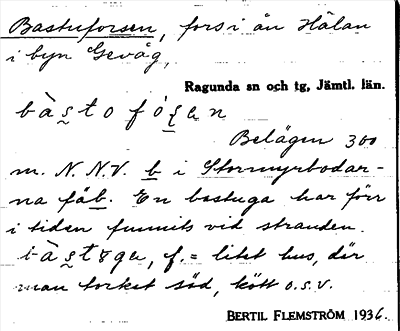 Bastuforsen, fors i ån Hålan
i byn Gevåg,
Ragunda sn och tg, Jämtl. län.
bàs̰to fó̰s̰en
Belägen 300
m. N.N.V. b i Stormyrbodar-
na fäb. En bastuga har förr
i tiden funnits vid stranden.
bàs̰tɐga, f. = litet hus, där
man torkat säd, kött o.s.v.
BERTIL FLEMSTRÖM 1936.